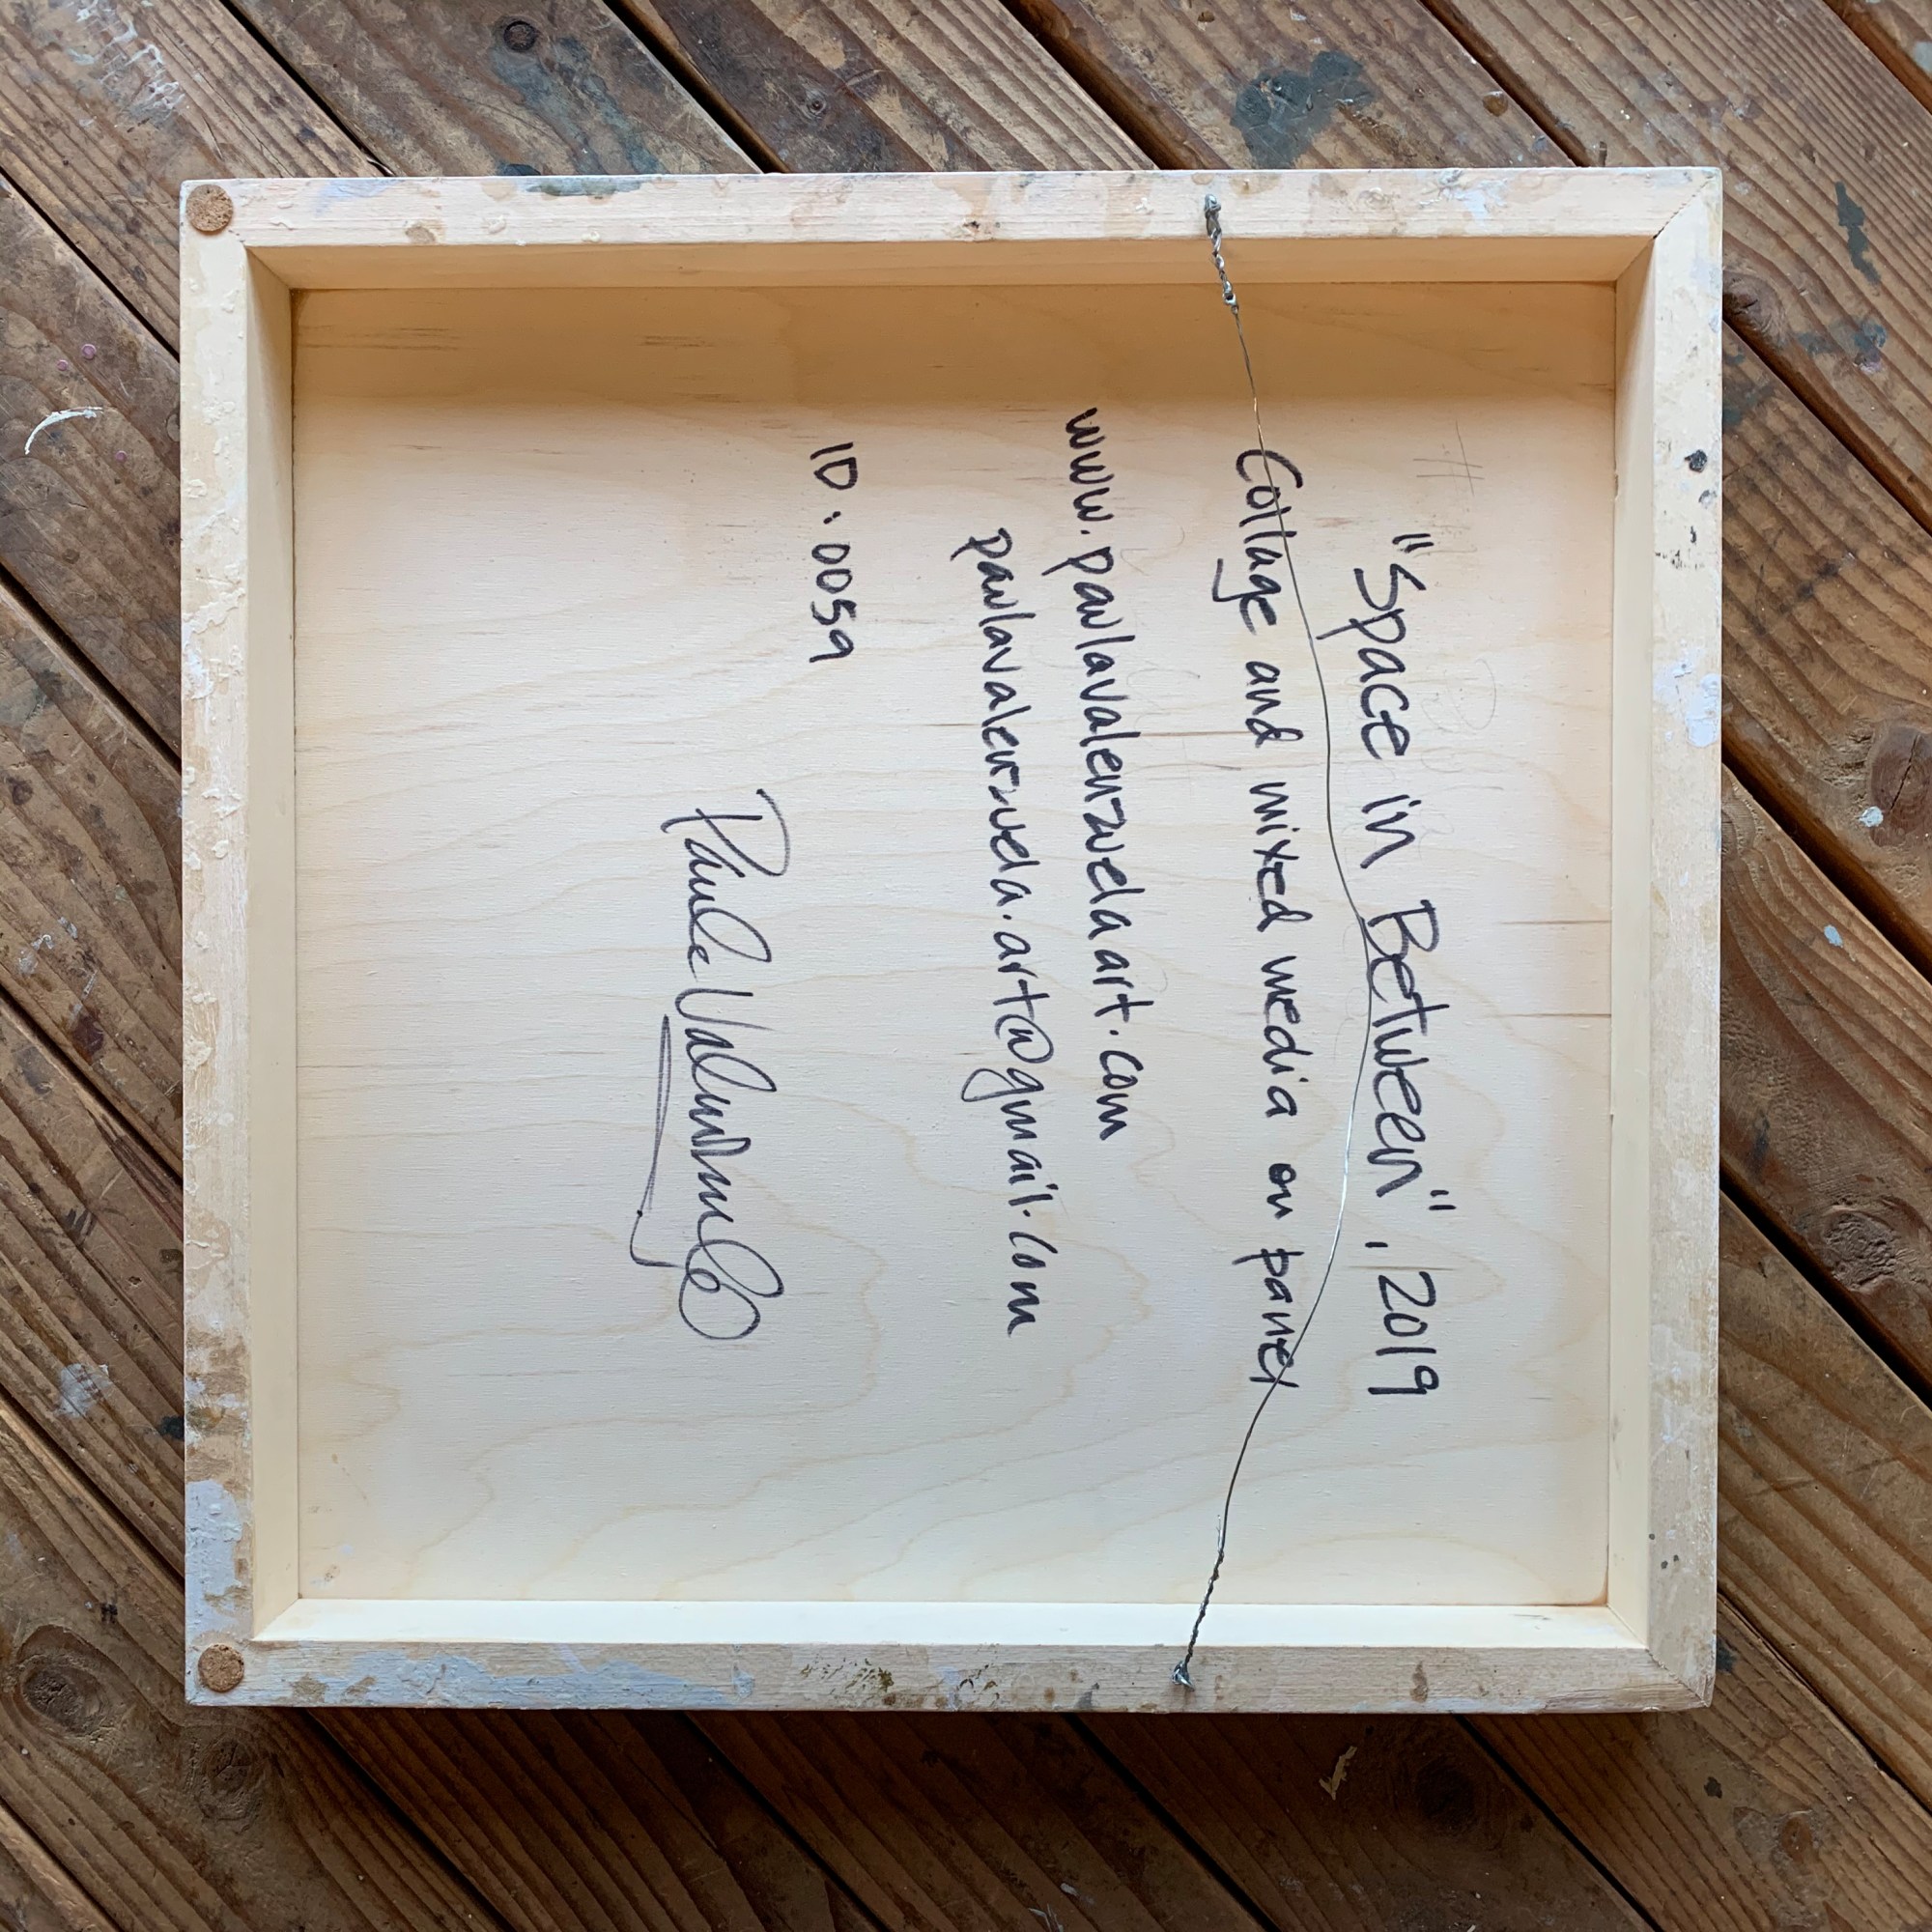 "Space in Between", 2019
Collage and mixed media on panel
www.paulavalenzuelaart.com
paulavalenzuela.art@gmail.com
ID.0059
Paula Valenzuela